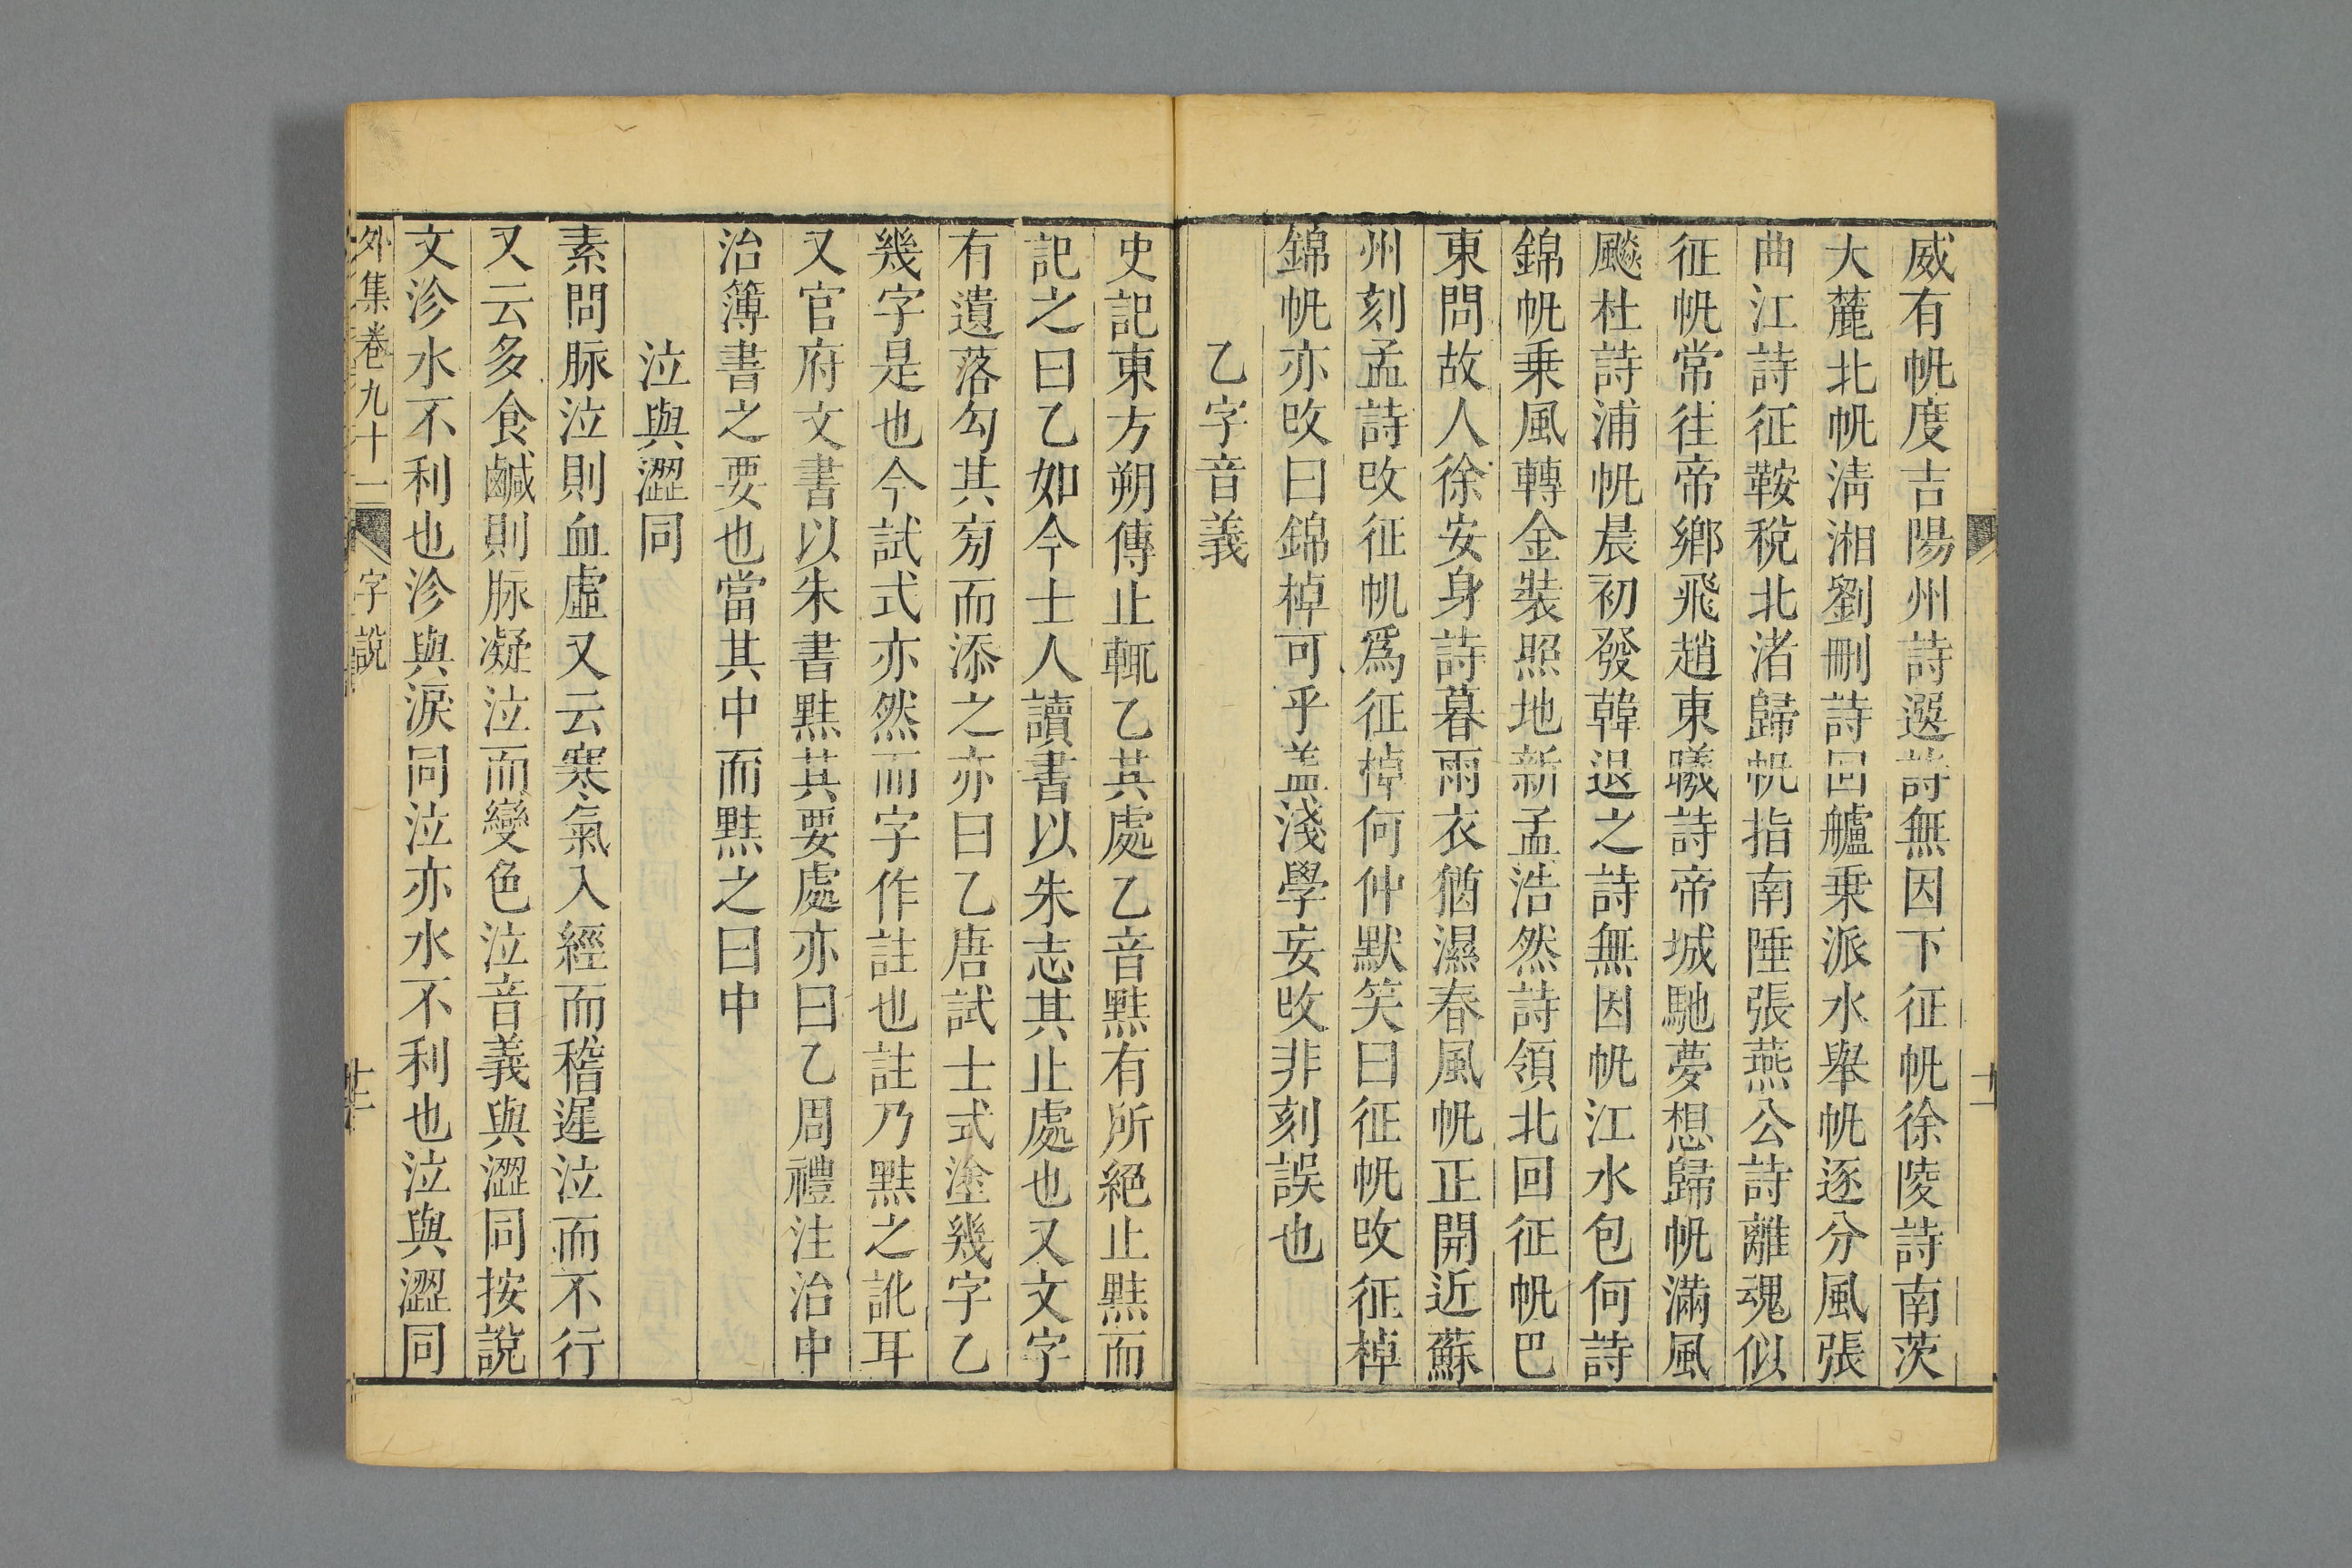 威有帆度吉陽州詩選詩無因下征帆徐陵詩南茨
大麓北帆淸湘劉刪詩回艫乗派水舉帆逐分風張
曲江詩征鞍稅北渚歸帆指南陲張燕公詩離魂似
征帆常往帝鄉飛趙東曦詩帝城馳夢想歸帆滿風
飈杜詩浦帆晨初發韓退之詩無因帆江水包何詩
錦帆乗風轉金裝照地新孟浩然詩領北回征帆巴
東問故人徐安身詩暮雨衣猶濕春風帆正開近蘇
州刻孟詩攺征帆爲征棹何仲默笑曰征帆攺征棹
錦帆亦攺曰錦棹可乎盖淺學妄攺非刻誤也
乙字音義
史記東方朔傳止輒乙其處乙音㸃有所絕止㸃而
記之曰乙如今士人讀書以朱志其止處也又文字
有遺落勾其旁而添之亦曰乙唐試士式塗幾字乙
幾字是也今試式亦然而字作註也註乃㸃之訛耳
又官府文書以朱書㸃其要處亦曰乙周禮注治中
治簿書之要也當其中而㸃之曰中
泣與澀同
素問脉泣則血虛又云寒氣入經而稽遲泣而不行
又云多食鹹則脉凝泣而變色泣音義與澀同按說
文沴水不利也沴與淚同泣亦水不利也泣與澀同
外集卷九十一 字說